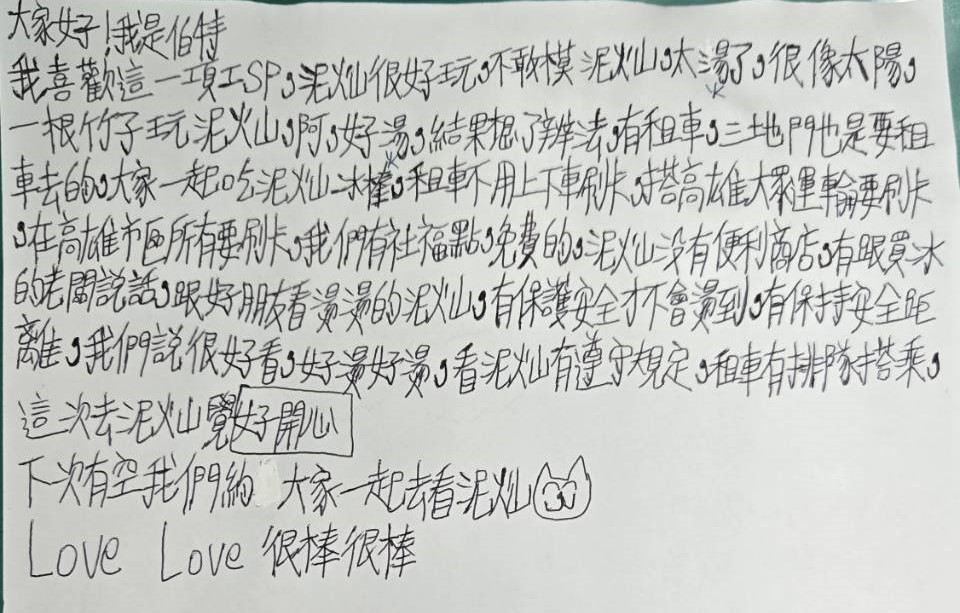 大家好!我是伯特
我喜歡這一項工SP,泥火山很好玩,不敢模泥火山,太湯了,很像太陽,
一根竹子玩泥火山,阿,好湯,結果想了辦法,有租車,三地門也是要租
車去的,大家一起吃泥火山冰棒,租車不用上下車刷卡,搭高雄大眾運輸要刷卡
,在高雄市區所有要刷卡,我們有社福點,免費的,泥火山沒有便利商店,有跟買冰
的老闆說話,跟好朋友看燙燙的泥火山,有保護安全才不會燙到,有保持安全距
離,我們說很好看,好燙好燙,看泥火山有遵守規定,租車有排隊搭乘,
這次去泥火山覺好開心
下次有空我們約 大家一起去看泥火山
Love Love 很棒很棒